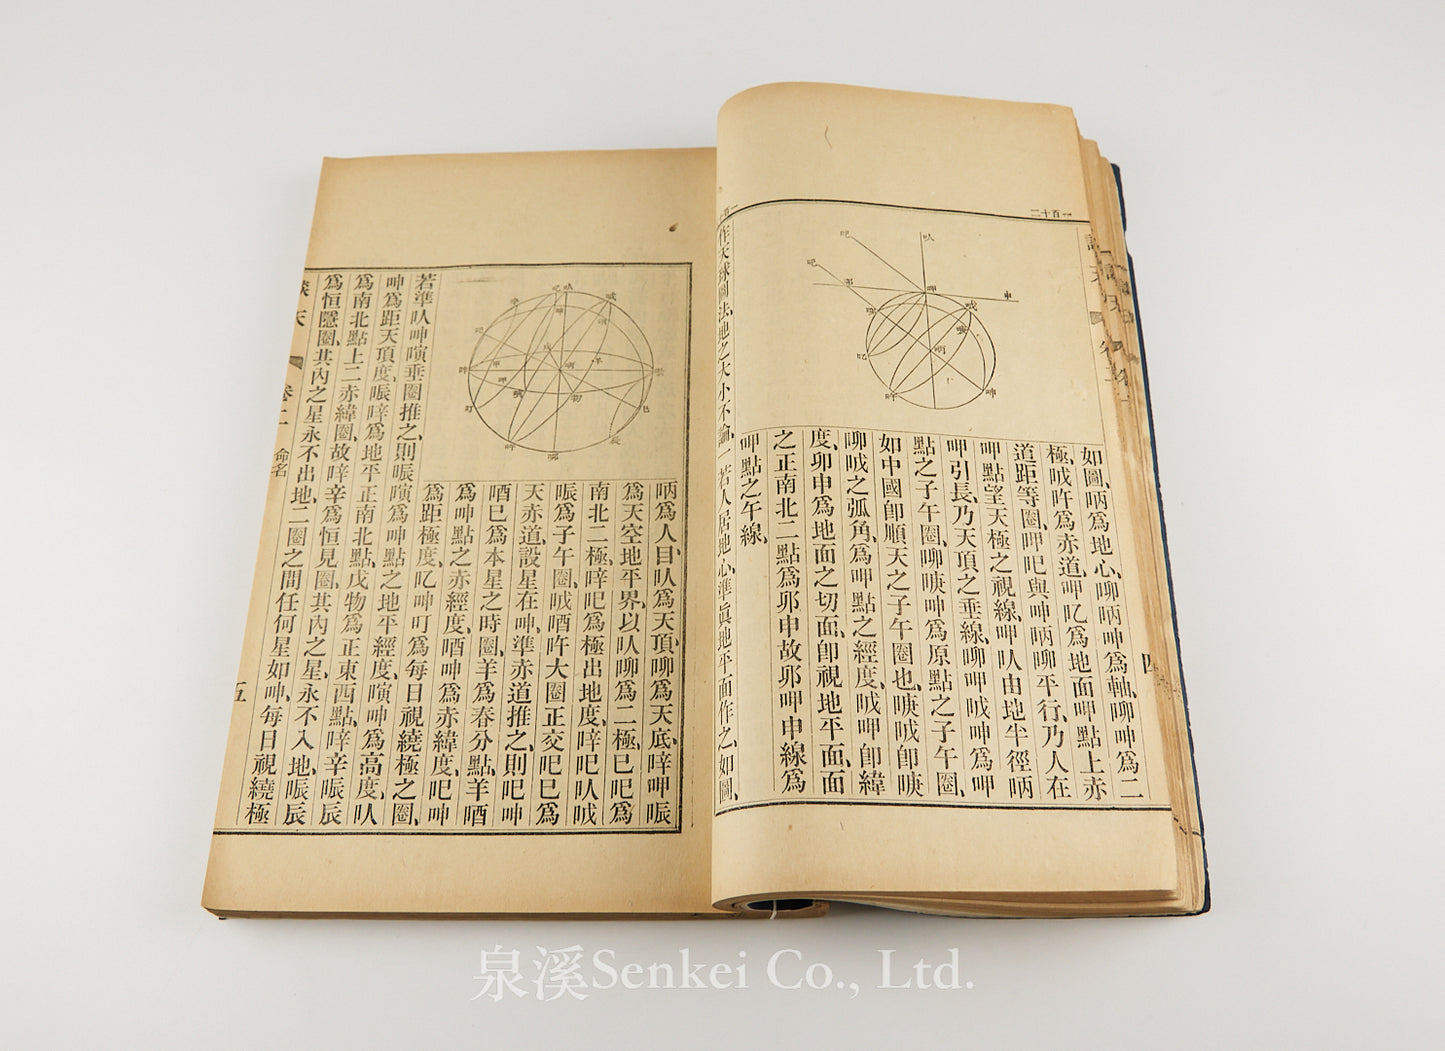 一百十二
如圖、𠰳爲地心、𠰭𠰳呻爲軸、𠰭呻爲二
極、㖅吘爲赤道、呷𠮙爲地面呷點上赤
道距等圈、呷吧與呻𠰳𠰭平行、乃人在
呷點望天極之視線、呷㕥由地半徑𠰳
呷引長、乃天頂之垂線、𠰭呷㖅呻爲呷
點之子午圈、𠰭⿰口庚呻爲原點之子午圈、
如中國卽順天之子午圈也、⿰口庚㖅卽⿰口庚
𠰭㖅之弧角、爲呷點之經度、㖅呷卽緯
度、卯申爲地面之切面、卽視地平面、面
之正南北二點爲卯申故卯呷申線爲
呷點之午線、
作天球圖法、地之大小不論、一若人居地心、準眞地平面作之、如圖、
四
𠰳爲人目、㕥爲天頂、𠰭爲天底、㖕呷㖘
爲天空地平界、以㕥𠰭爲二極、巳吧爲
南北二極、㖕吧爲極出地度、㖕吧㕥㖅
㖘爲子午圈、㖅唒吘大圈正交吧巳爲
天赤道、設星在呻、準赤道推之、則吧呻
唒巳爲本星之時圈、羊爲春分點、羊唒
爲呻點之赤經度、唒呻爲赤緯度、吧呻
爲距極度、𠮙呻叮爲每日視繞極之圈、
若準㕥呻⿰口寅垂圈推之、則㖘⿰口寅爲呻點之地平經度、⿰口寅呻爲高度、㕥
呻爲距天頂度、㖘㖕爲地平正南北點、戊物爲正東西點、㖕辛㖘辰
爲南北點上二赤緯圈、故㖕辛爲恒見圈、其內之星、永不入地、㖘辰
爲恒隱圈、其內之星永不出地、二圈之間任何星如呻、每日視繞極
談天
卷二 命名
五
泉溪Senkei Co., Ltd.